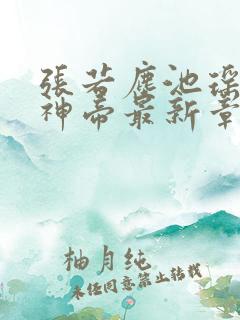 張若塵池瑤
神帝最新章
柚月纯
未经同意禁止转载